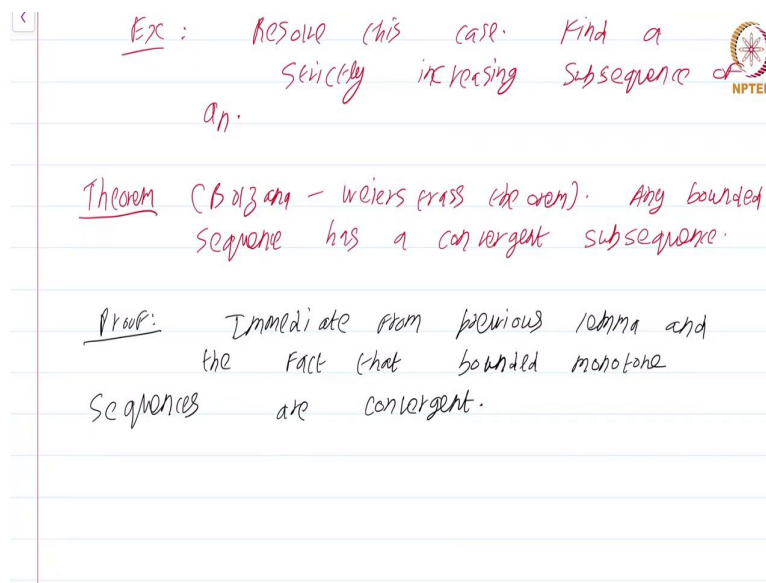 Ex : Resolve this case. Find a
strictly increasing subsequence of
an.
NPTEL
Theorem (Bolzana - weierstrass theorem). Any bounded
sequence has a convergent subsequence.
Proof: Immediate from previous lemma and
the fact that bounded monotone
sequences are convergent.